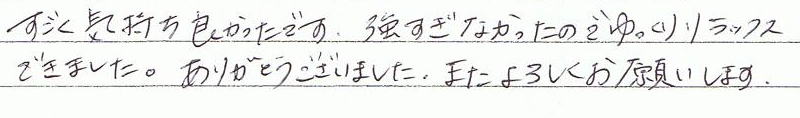 すごく気持ち良かったです。強すぎなかったのでゆっくりリラックス
できました。ありがとうございました。またよろしくお願いします.